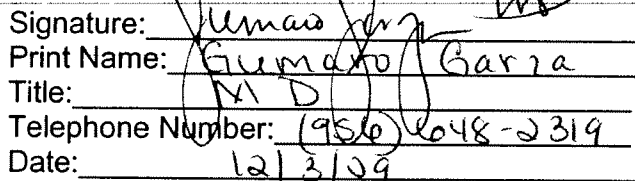 Signature:
Print Name: Gumaro Garza
Title: MD
Telephone Number: (956) 648-2319
Date: 12/3/09